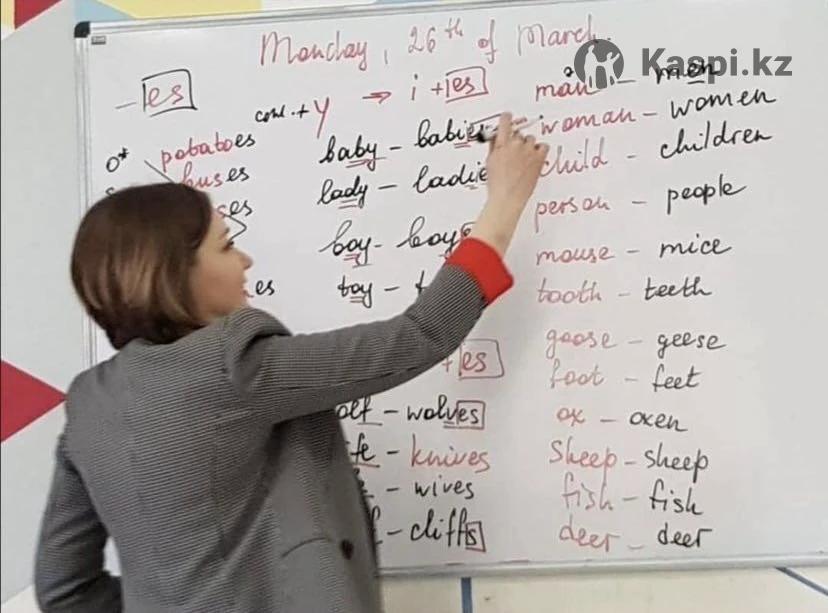 Monday, 26th of March.
Kaspi.kz
-es
cons. + y → i + ies
o* potatoes
buses
es
es
baby - babies
lady - ladie
boy - boy
toy -
+ es
olf - wolves
ife - knives
- wives
- cliffs
man - men
woman - women
child - children
person - people
mouse - mice
tooth - teeth
goose - geese
foot - feet
ox - oxen
Sheep - sheep
fish - fish
deer - deer